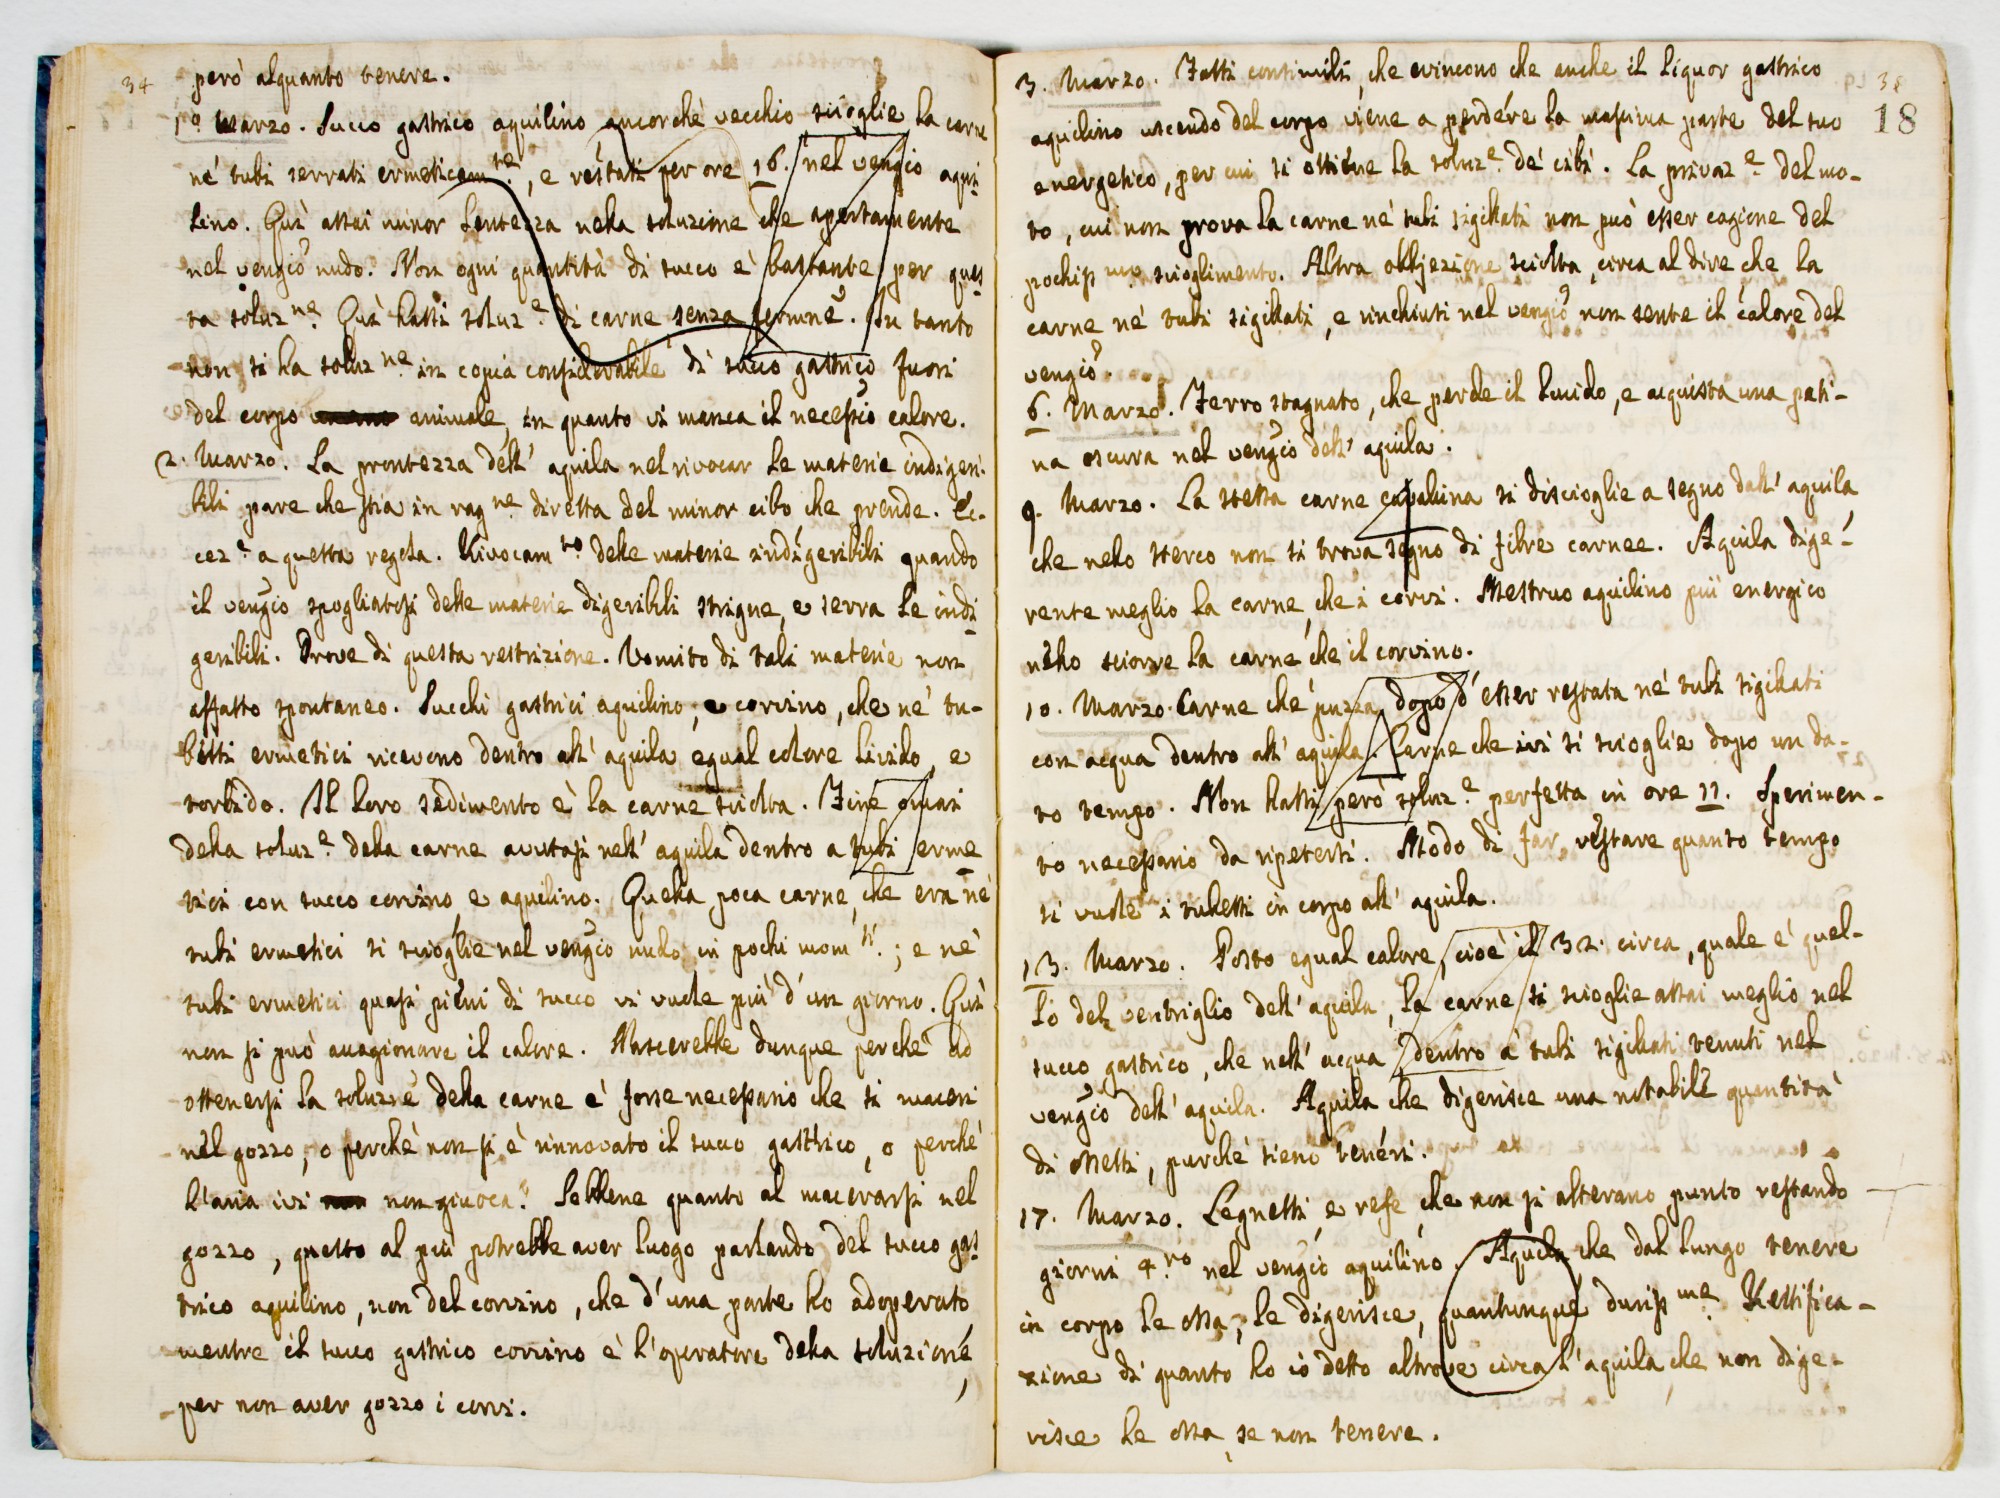 34
però alquanto tenere.
1.º Marzo. Succo gastrico aquilino ancorchè vecchio scioglie la carne
ne' tubi serrati ermeticam.te, e restati per ore 16. nel vengio aqui
lino. Quì assai minor lentezza nella soluzione che apertamente
nel vengio nudo. Non ogni quantità di succo è bastante per ques
ta soluz.ne. Quì hassi soluz.e di carne senza
non si ha soluz.ne in copia considerabile di succo gastrico fuori
del corpo animale, in quanto vi manca il necessio calore.
2. Marzo. La prontezza dell' aquila nel rivocar le materie indigeri-
bili pare che stia in rag.ne diretta del minor cibo che prende. Ec-
cez.e a questa regola. Rivocam.to delle materie indigeribili quando
il vengio spogliatosi delle materie digeribili strigne, e serra le indi
geribili. Prove di questa restrizione. Vomito di tali materie non
affatto spontaneo. Succhi gastrici aquilino, e corvino, che ne' tu-
betti ermetici ricevono dentro all' aquila egual colore livido, e
torbido. Il loro sedimento è la carne sciolta. Fine quasi
della soluz.e della carne avutasi nell' aquila dentro a tubi erme
tici con succo corvino, e aquilino. Quella poca carne, che era ne'
tubi ermetici si scioglie nel vengio nudo in pochi mom.ti; e ne'
tubi ermetici quasi pieni di succo vi vuole più d'un giorno. Quì
non si può accagionare il calore. Nascerebbe dunque perchè ad
ottenersi la soluz.e della carne è forse necessario che si maceri
nel gozzo, o perchè non si è rinnovato il succo gastrico, o perchè
l'aria ivi non giuoca? Sebbene quanto al macerarsi nel
gozzo, questo al più potrebbe aver luogo parlando del succo gas
trico aquilino, non del corvino, che d'una parte ho adoperato,
mentre il succo gastrico corvino è l'operatore della soluzione,
per non aver gozzo i corvi.
18
3. Marzo. Fatti consimili, che evincono che anche il liquor gastrico
aquilino uscendo del corpo viene a perdere la massima parte del suo
energetico, per cui si ottiene la soluz.e de' cibi. La privaz.e del mo-
to, cui non prova la carne ne' tubi sigillati non può esser cagione del
pochiss.mo scioglimento. Altra obbjezione sciolta, circa al dire che la
carne ne' tubi sigillati, e rinchiusi nel vengio non sente il calore del
vengio.
6. Marzo. Ferro stagnato, che perde il lucido, e acquista una pati-
na oscura nel vengio dell' aquila.
9. Marzo. La stessa carne si discioglie a segno dall' aquila,
che nello sterco non si trova segno di fibre carnee. Aquila dige-
rente meglio la carne, che i corvi. Mestruo aquilino più energico
nello sciorre la carne che il corvino.
10. Marzo. Carne che puzza dopo d'esser restata ne' tubi sigillati
con acqua dentro all' aquila. Carne che ivi si scioglie dopo un da-
to tempo. Non hassi però soluz.e perfetta in ore 11. Sperimen-
to necessario da ripetersi. Modo di far restare quanto tempo
si vuole i tubetti in corpo all' aquila.
13. Marzo. Posto egual calore, cioè il 32. circa, quale è quel-
lo del ventriglio dell' aquila, la carne si scioglie assai meglio nel
succo gastrico, che nell' acqua dentro a tubi sigillati tenuti nel
vengio dell' aquila. Aquila che digerisce una notabile quantità
di ossetti, purchè sieno teneri.
17. Marzo. Legnetti, e refe che non si alterano punto restando
giorni 4.ro nel vengio aquilino. Aquila che dal lungo tenere
in corpo le ossa, le digerisce, quantunque duriss.me. Rettifica-
zione di quanto ho io detto altrove circa l'aquila, che non dige-
risce le ossa, se non tenere.